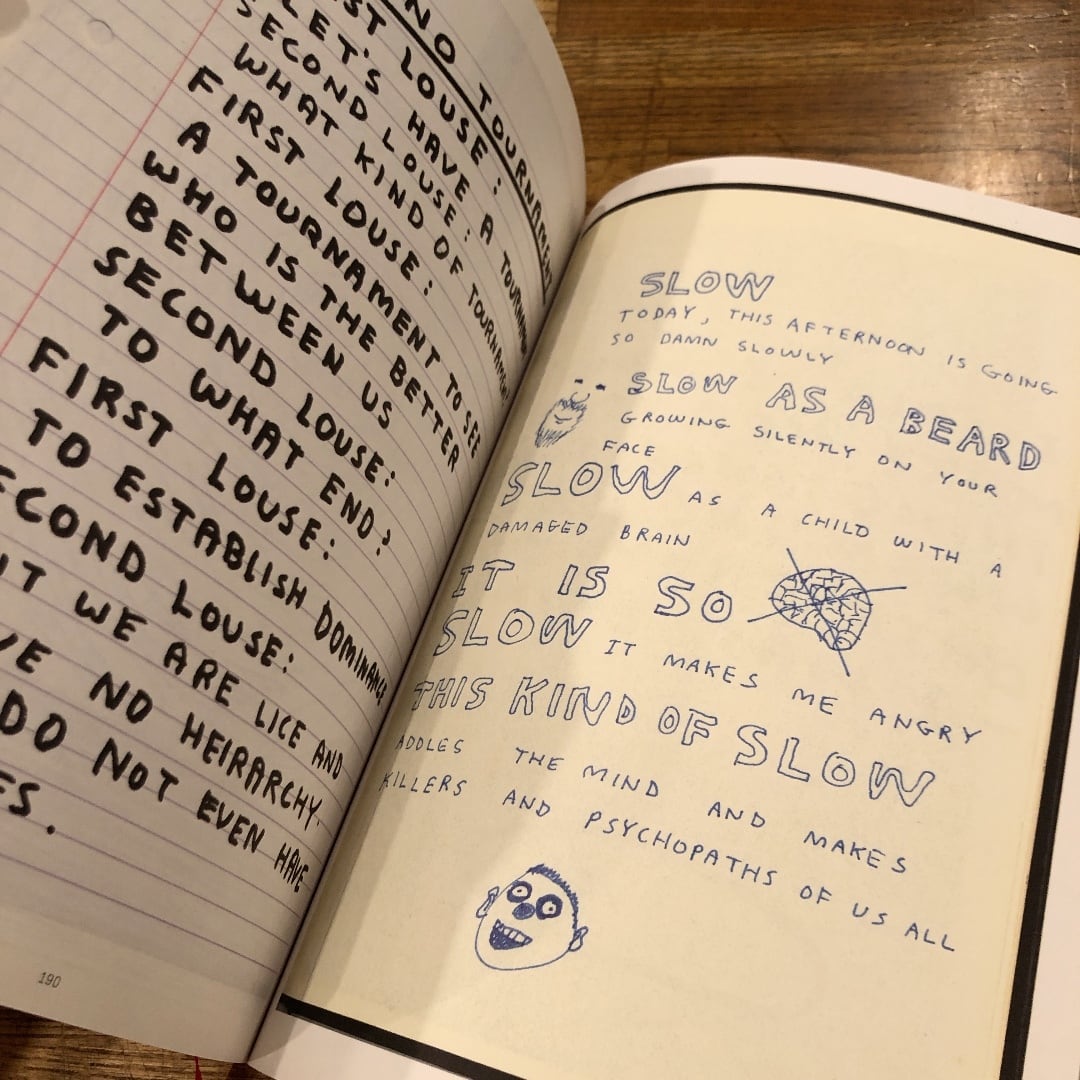 NO TOURNAMENT
LOUSE:
LET'S HAVE A TOURNAMENT
SECOND LOUSE:
WHAT KIND OF TOURNAMENT
FIRST LOUSE:
A TOURNAMENT TO SEE
WHO IS THE BETTER
BETWEEN US
SECOND LOUSE:
TO WHAT END?
FIRST LOUSE:
TO ESTABLISH DOMINANCE
SECOND LOUSE:
WE ARE LICE AND
NO HEIRARCHY.
DO NOT EVEN HAVE
190
SLOW
TODAY, THIS AFTERNOON IS GOING
SO DAMN SLOWLY
SLOW AS A BEARD
GROWING SILENTLY ON YOUR
FACE
SLOW AS A CHILD WITH A
DAMAGED BRAIN
IT IS SO
SLOW IT MAKES ME ANGRY
THIS KIND OF SLOW
ADDLES THE MIND AND MAKES
KILLERS AND PSYCHOPATHS OF US ALL